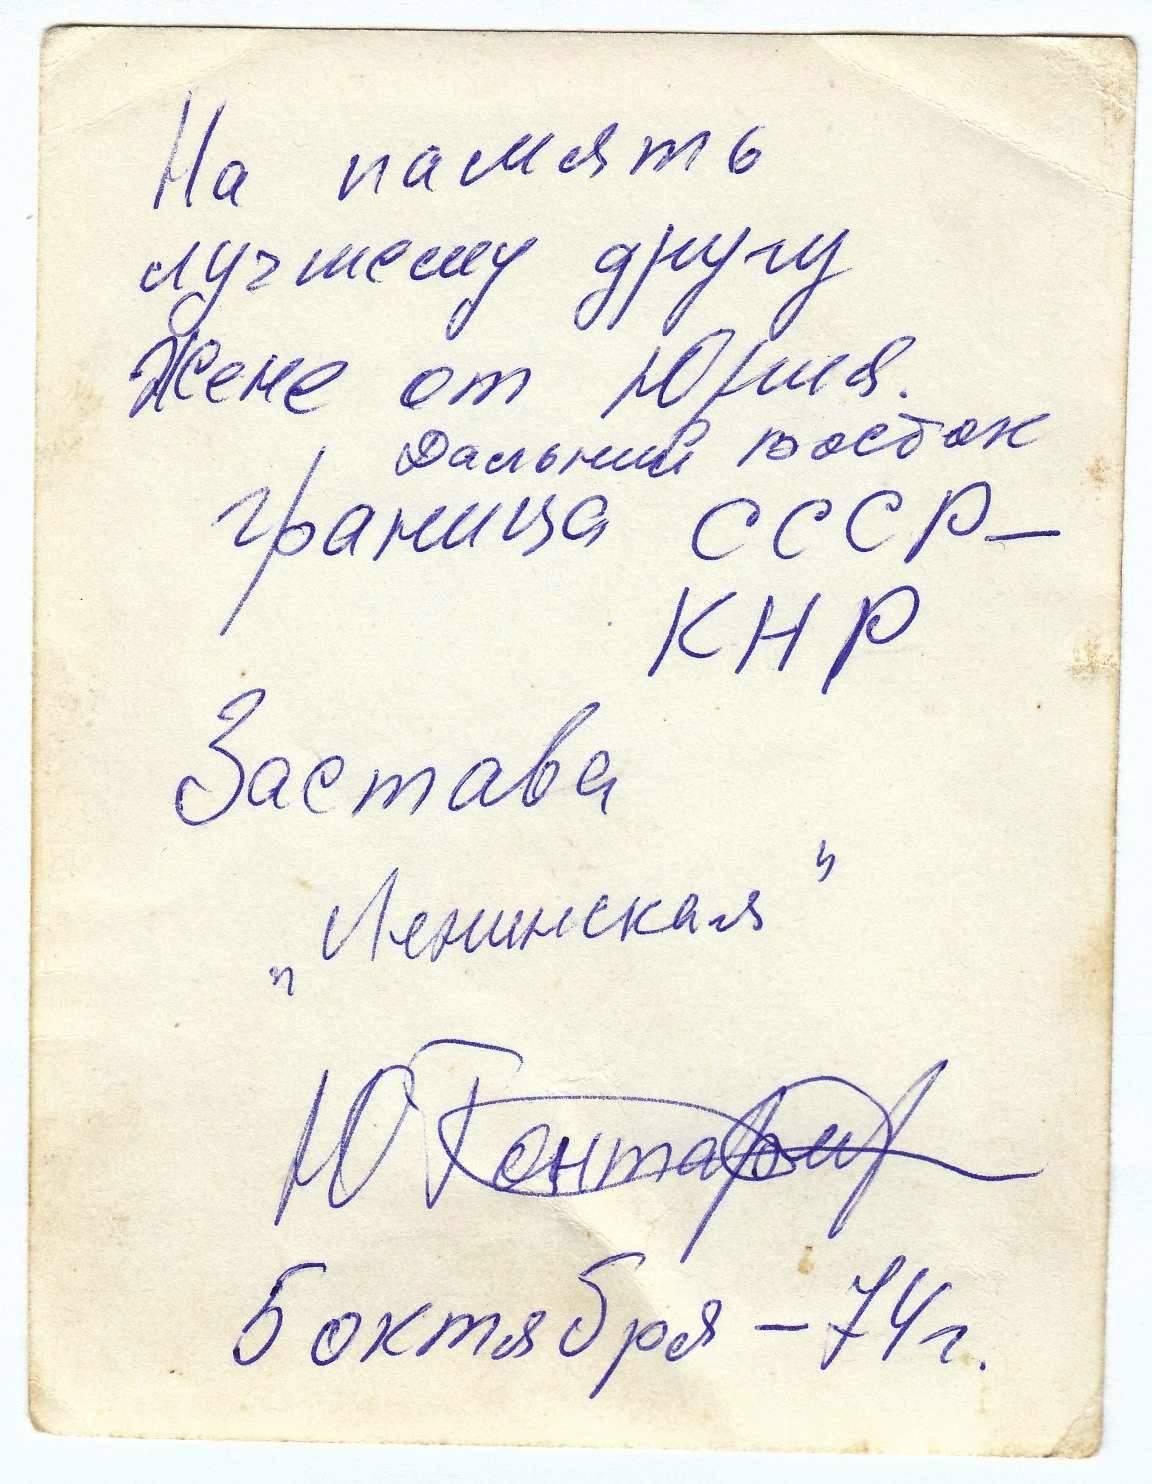 На память
лучшему другу
Жене от Юрия.
Дальний восток
граница СССР-
КНР
Застава
„Ленинская"
Ю
5 октября - 74 г.